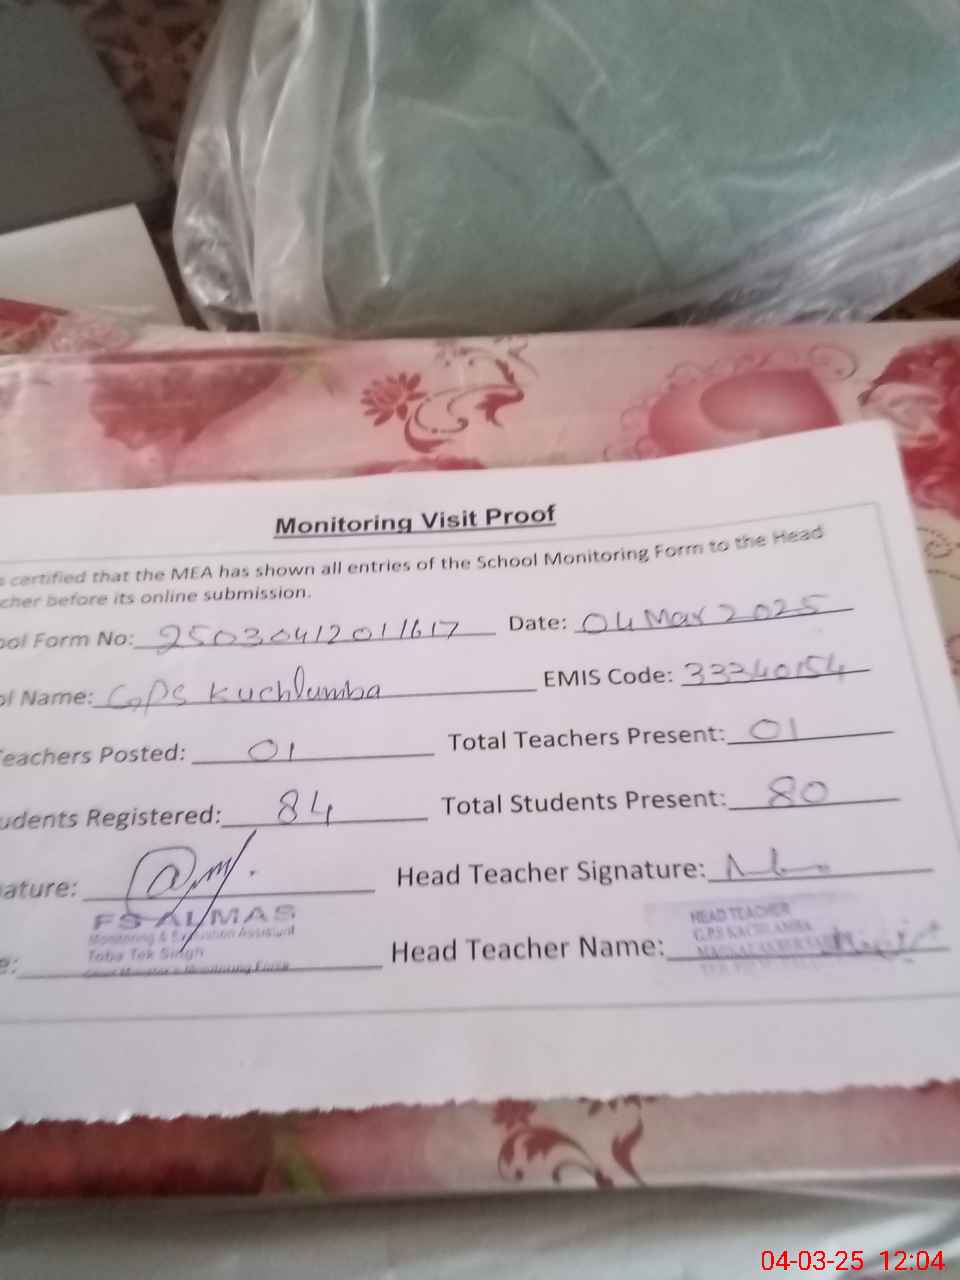 Monitoring Visit Proof
s certified that the MEA has shown all entries of the School Monitoring Form to the Head
cher before its online submission.
ool Form No: 25030412011617 Date: 04 Mar 2025
ol Name: GPS Kuchlumba EMIS Code: 33340154
Teachers Posted: 01 Total Teachers Present: 01
udents Registered: 84 Total Students Present: 80
ature: Head Teacher Signature:
FS ALMAS
Monitoring & Evaluation Assistant
Toba Tek Singh
HEAD TEACHER
G.P.S KACHLAMBA
e: Head Teacher Name:
04-03-25 12:04